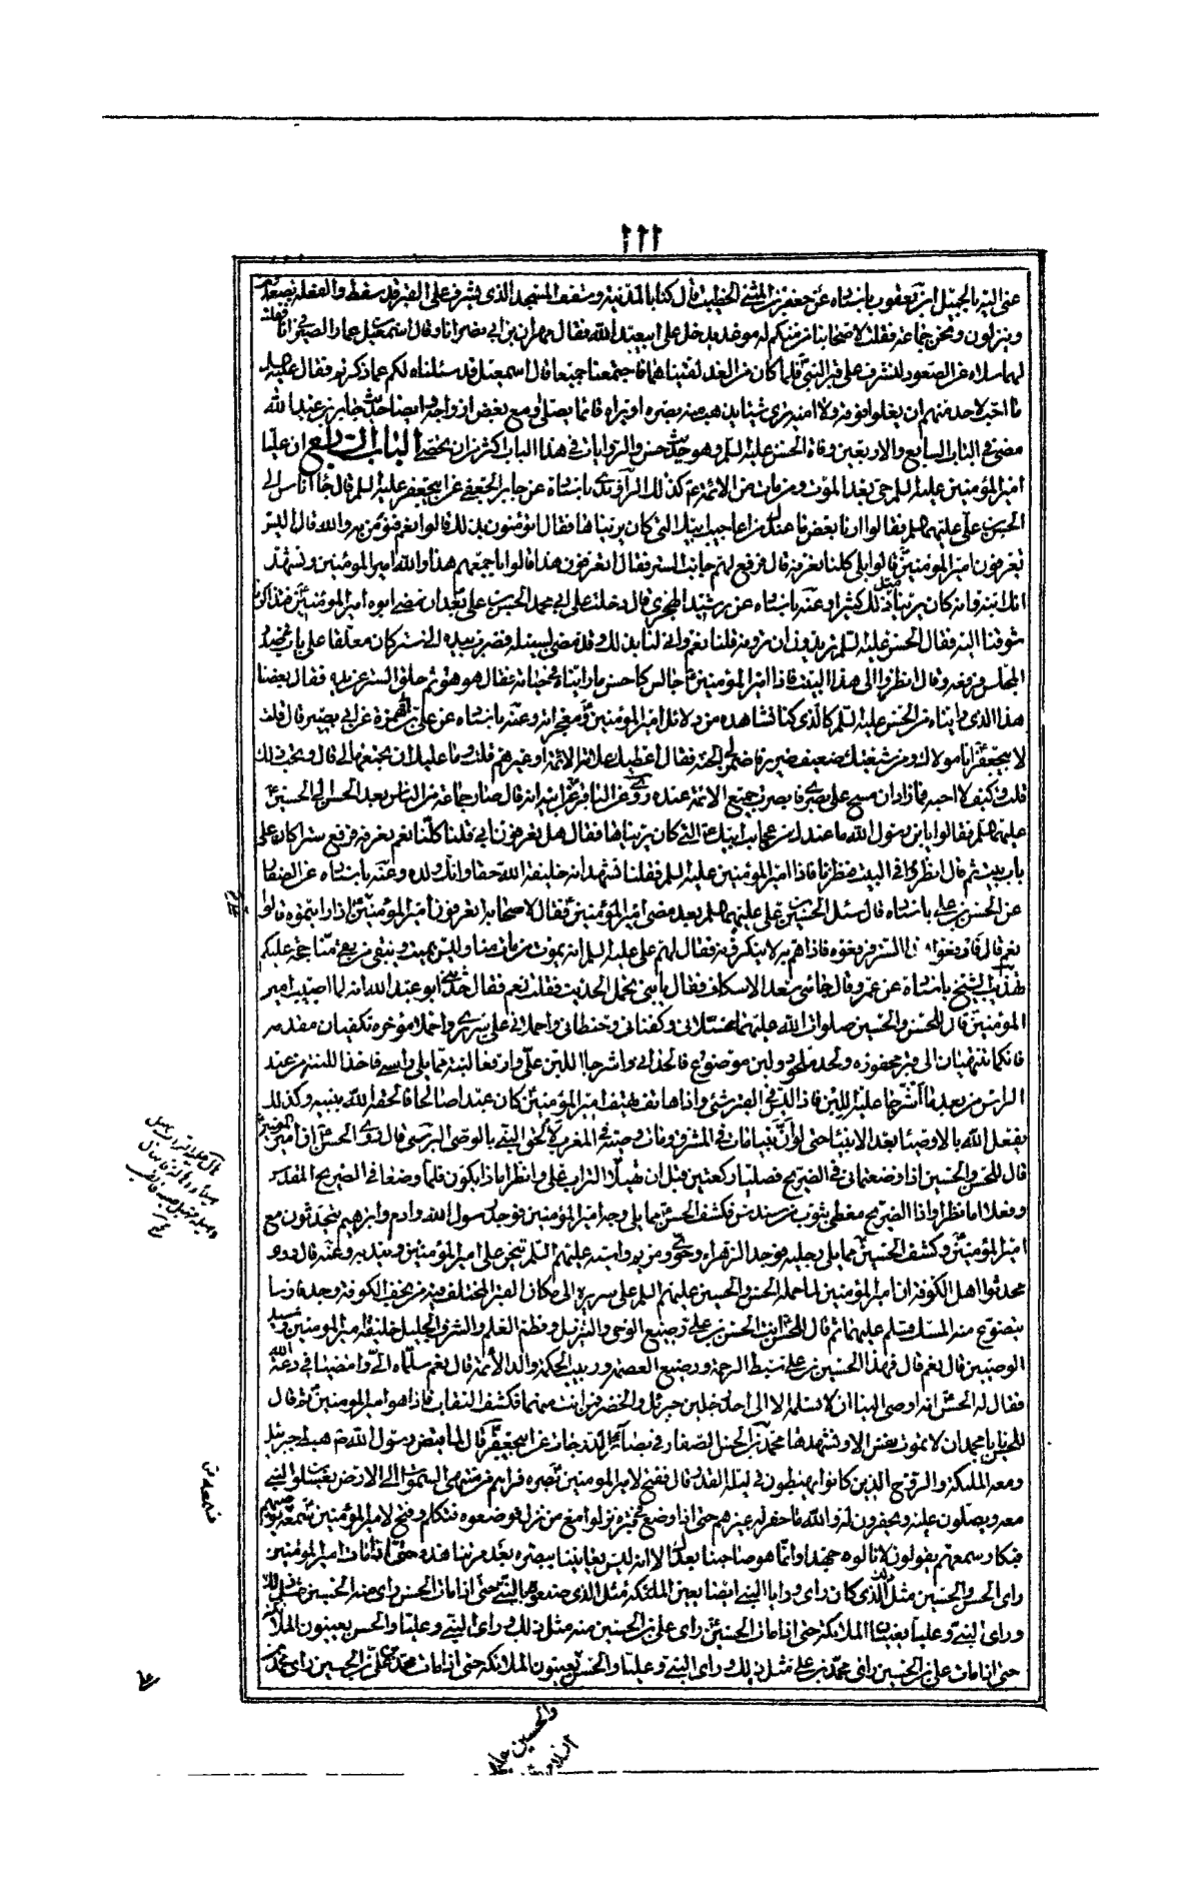 ١١١
عنى اليه بالجبل ابن يعقوب باسناده عن جعفر بن المثنى الخطيب قال كنا بالمدينة وسقف المسجد الذى يشرف على القبر قد سقط والفعلة يصعدون
وينزلون ونحن جماعة فقلت لاصحابنا من منكم له موعد يدخل على ابيعبد الله فقال مهران بن ابى بصير انا وقال اسمعيل بن عمار الصيرفى انا فقلنا
لهما سلاه عن الصعود لنشرف على قبر النبى فلما كان من الغد لقيناهما فاجتمعنا جميعا فقال اسمعيل قد سئلناه لكم عما ذكرتم فقال عليه السلم
ما احب لاحد منهم ان يعلو فوقه ولا امنه يرى شيئا يذهب منه بصره او يراه قائما يصلى او مع بعض ازواجه وايضا حديث جابر بن عبد الله
مضى فى الباب السابع والاربعين وفاة الحسن عليه السلم وهو حديث حسن والروايات فى هذا الباب اكثر من ان يحصى الباب الرابع ان عليا
امير المؤمنين عليه السلم حى بعد الموت ومن مات من الائمة كذلك الراوندى باسناده عن جابر الجعفى عن ابيجعفر عليه السلم قال جاء اناس الى
الحسن بن على عليهما السلم فقالوا ارنا بعض ما عندك من اعاجيب ابيك التى كان يريناها فقال اتؤمنون بذلك قالوا نعم نؤمن به والله قال اليس
تعرفون امير المؤمنين قالوا بلى كلنا نعرفه قال فرفع لهم جانب الستر فقال اتعرفون هذا قالوا باجمعهم هذا والله امير المؤمنين ونشهد
انك ابنه وانه كان يرينا مثل ذلك كثيرا وعنه باسناده عن رشيد الهجرى قال دخلت على ابى محمد الحسن بن على بعد ان مضى ابوه امير المؤمنين فتذاكرنا
شوقنا اليه فقال الحسن عليه السلم تريدون ان تروه قلنا نعم وانى لنا بذلك وقد مضى لسبيله فضرب بيده الى ستر كان معلقا على باب فى صدر
المجلس فرفعه وقال انظروا الى هذا البيت فاذا امير المؤمنين جالس كاحسن ما رايناه فى حياته فقال هو هو ثم خلى الستر عن يده فقال بعضنا
هذا الذى رايناه من الحسن عليه السلم كالذى كنا نشاهده من دلائل امير المؤمنين ومعجزاته وعنه باسناده عن على بن ابى حمزة عن ابى بصير قال قلت
لابيجعفر انا مولاك ومن شيعتك ضعيف ضرير فاضمن لى الجنة فقال اعطيك علامة الائمة او غيرهم قلت وما عليك ان تجمعها لى قال وتحب ذلك
قلت وكيف لا احب فما زاد ان مسح على بصرى فابصرت جميع الائمة عنده وروى عن الباقر عن ابيه انه قال صار جماعة من الناس بعد الحسن الى الحسين
عليهما السلم فقالوا يابن رسول الله ما عندك من عجائب ابيك التى كان يريناها فقال هل تعرفون ابى قلنا كلنا نعم نعرفه فرفع سترا كان على
باب بيت ثم قال انظروا فى البيت فنظرنا فاذا امير المؤمنين عليه السلم فقلنا نشهد انه خليفة الله حقا وانك ولده وعنه باسناده عن الصفار
عن الحسن بن على باسناده قال سئل الحسين بن على عليهما السلم بعد مضى امير المؤمنين فقال لاصحابه اتعرفون امير المؤمنين اذا رايتموه قالوا
نعم قال فارفعوا هذا الستر فرفعوه فاذا هم به لا ينكرونه فقال لهم على عليه السلم انه يموت من مات منا وليس بميت ويبقى من بقى منا حجة عليكم
تهذيب الشيخ باسناده عن عمرو قال جائنى سعد الاسكاف فقال يا بنى تحمل الحديث فقلت نعم فقال حدثنى ابو عبد الله انه لما اصيب امير
المؤمنين قال للحسن والحسين صلوات الله عليهما غسلانى وكفنانى وحنطانى واحملانى على سريرى واحملا مؤخره تكفيان مقدمه
فانكما تنتهيان الى قبر محفور ولحد ملحود ولبن موضوع فالحدانى واشرجا اللبن على وارفعا لبنة مما يلى راسى فاخذا اللبنة من عند
الراس من بعد ما اشرجا عليه اللبن فاذا ليس فى القبر شئ واذا هاتف يهتف امير المؤمنين كان عبدا صالحا فالحقه الله بنبيه وكذلك
يفعل الله بالاوصياء بعد الانبياء حتى لو ان نبيا مات فى المشرق ومات وصيه فى المغرب لالحق النبى بالوصى البرسى قال روى الحسن ان امير المؤمنين
قال للحسن والحسين اذا وضعتمانى فى الضريح فصليا ركعتين قبل ان تهيلا التراب على وانظرا ماذا يكون فلما وضعا فى الضريح المقدس
وفعلا ما امرا نظرا واذا الضريح مغطى بثوب من سندس فكشف الحسن مما يلى وجه امير المؤمنين فوجد رسول الله وادم وابرهيم يتحدثون مع
امير المؤمنين وكشف الحسين مما يلى رجليه فوجد الزهراء وحوى ومريم واسية عليهن السلم ينحن على امير المؤمنين ويندبنه وعنه قال روى
محدثوا اهل الكوفة ان امير المؤمنين لما حمله الحسن والحسين عليهم السلم على سريره الى مكان القبر المختلف فيه من نجف الكوفة وجدا فارسا
يتضوع منه المسك فسلم عليهما ثم قال للحسن انت الحسن بن على رضيع الوحى والتنزيل وفطيم العلم والشرف الجليل خليفة امير المؤمنين وسيد
الوصيين قال نعم قال فهذا الحسين بن على سبط الرحمة ورضيع العصمة وربيب الحكمة ووالد الائمة قال نعم سلماه الى وامضيا فى دعة الله
فقال له الحسن انه اوصى الينا ان لا نسلمه الا الى احد رجلين جبرئيل والخضر فمن انت منهما فكشف النقاب فاذا هو امير المؤمنين ثم قال
للحسن يا با محمد انه لا تموت نفس الا ونشهدها محمد بن الحسن الصفار فى بصائر الدرجات عن ابيجعفر قال لما قبض رسول الله ص هبط جبرئيل
ومعه الملئكة والروح الذين كانوا يهبطون فى ليلة القدر قال ففتح لامير المؤمنين بصره فراهم من منتهى السموات الى الارض يغسلون النبى
معه ويصلون عليه ويحفرون له والله ما حفر له غيرهم حتى اذا وضع فى قبره نزلوا مع من نزل فوضعوه فتكلم وفتح لامير المؤمنين سمعه فسمعه يوصيهم
فبكا وسمعهم يقولون لا نالوه جهدا وانما هو صاحبنا بعدك الا انه ليس يعايننا ببصره بعد مرتنا هذه حتى اذا مات امير المؤمنين
راى الحسن والحسين مثل ذلك الذى كان راى ورايا النبى ايضا يعين الملئكة مثل الذى صنعوه بالنبى حتى اذا مات الحسن راى منه الحسين مثل ذلك
وراى النبى وعليا يعينان الملائكة حتى اذا مات الحسين راى على بن الحسين منه مثل ذلك وراى النبى وعليا والحسن يعينون الملائكة
حتى اذا مات على بن الحسين راى محمد بن على مثل ذلك وراى النبى وعليا والحسن والحسين يعينون الملائكة حتى اذا مات محمد بن على راى جعفر
فسمعه
والحسين